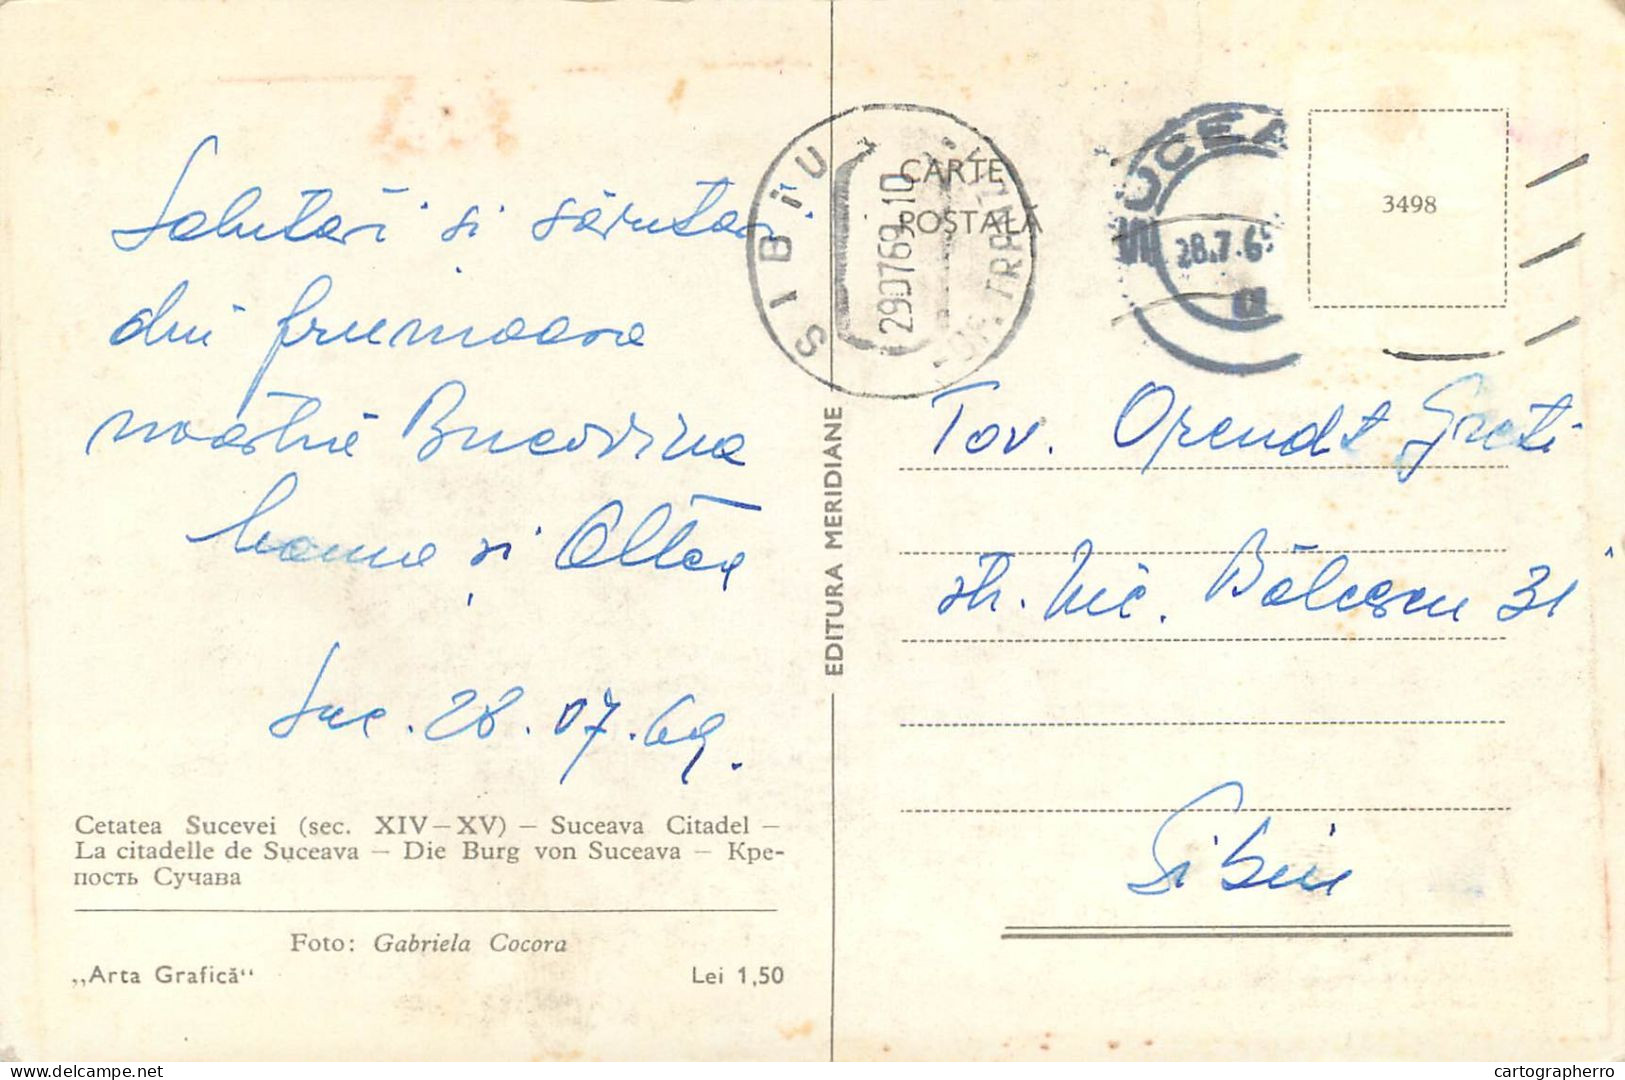 Salutări și sărutări
din frumoasa
noastră Bucovina
și Oltea
Suc. 28.07.69.
Cetatea Sucevei (sec. XIV–XV) – Suceava Citadel –
La citadelle de Suceava – Die Burg von Suceava – Кре-
пость Сучава
Foto: Gabriela Cocora
„Arta Grafică“ Lei 1,50
EDITURA MERIDIANE
SIBIU
290769.10
CARTE
POȘTALĂ
28.7.69
3498
Tov. Orendt Greti
str. Nic. Bălcescu 31
Sibiu
delcampe.net
cartographerro